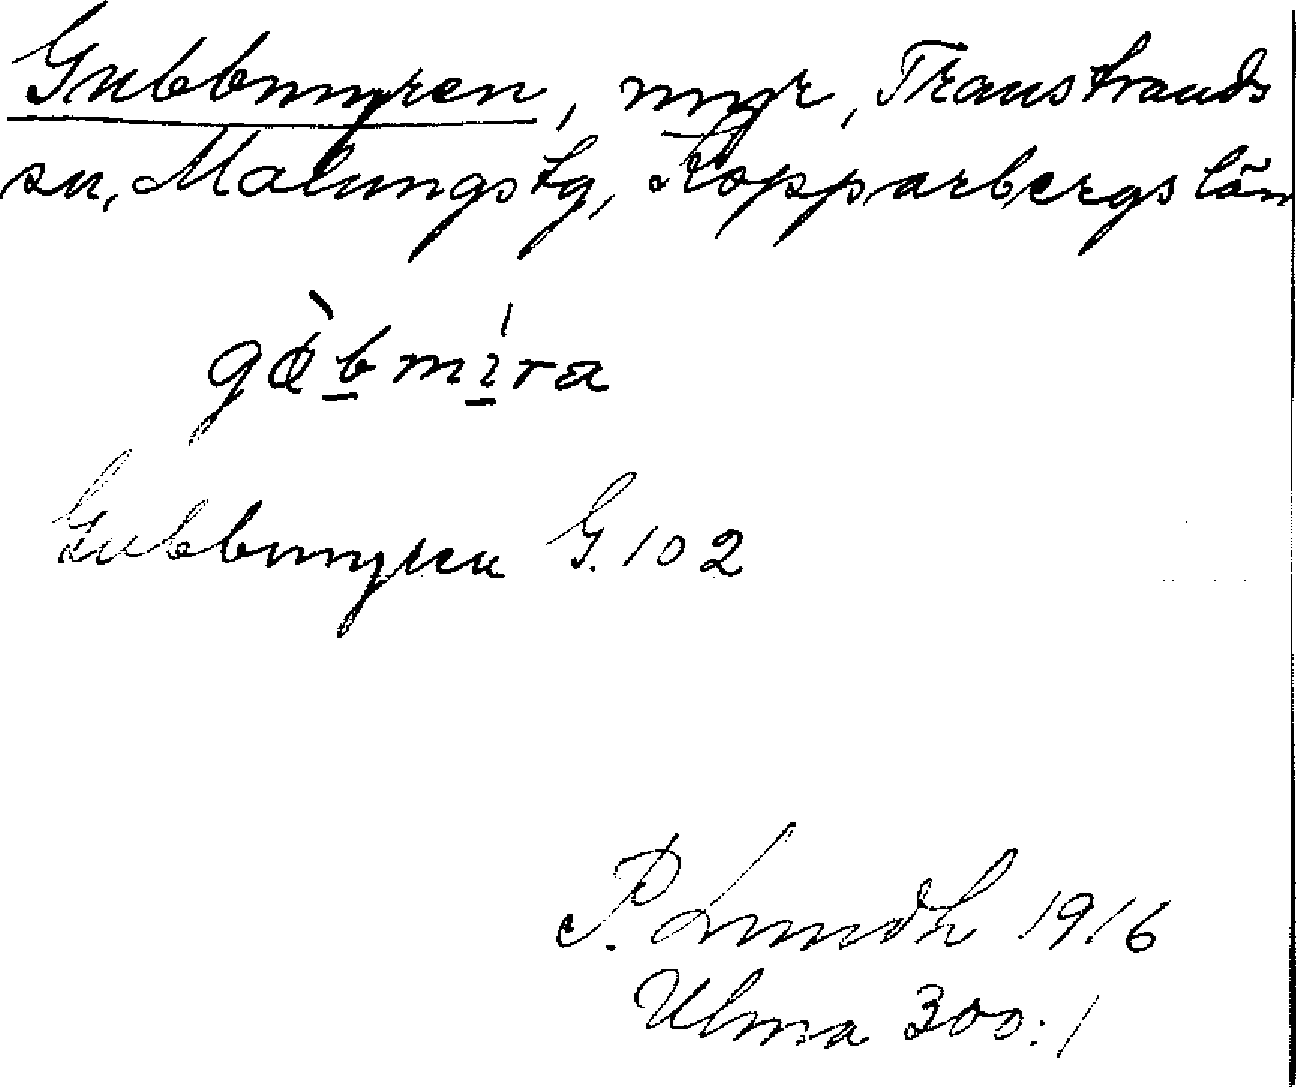 Gubbmyren, myr, Transtrands
sn, Malungs tg, Kopparbergs län
Gubbmyren G. 102
P. Lundh 1916
Ulma 300:1